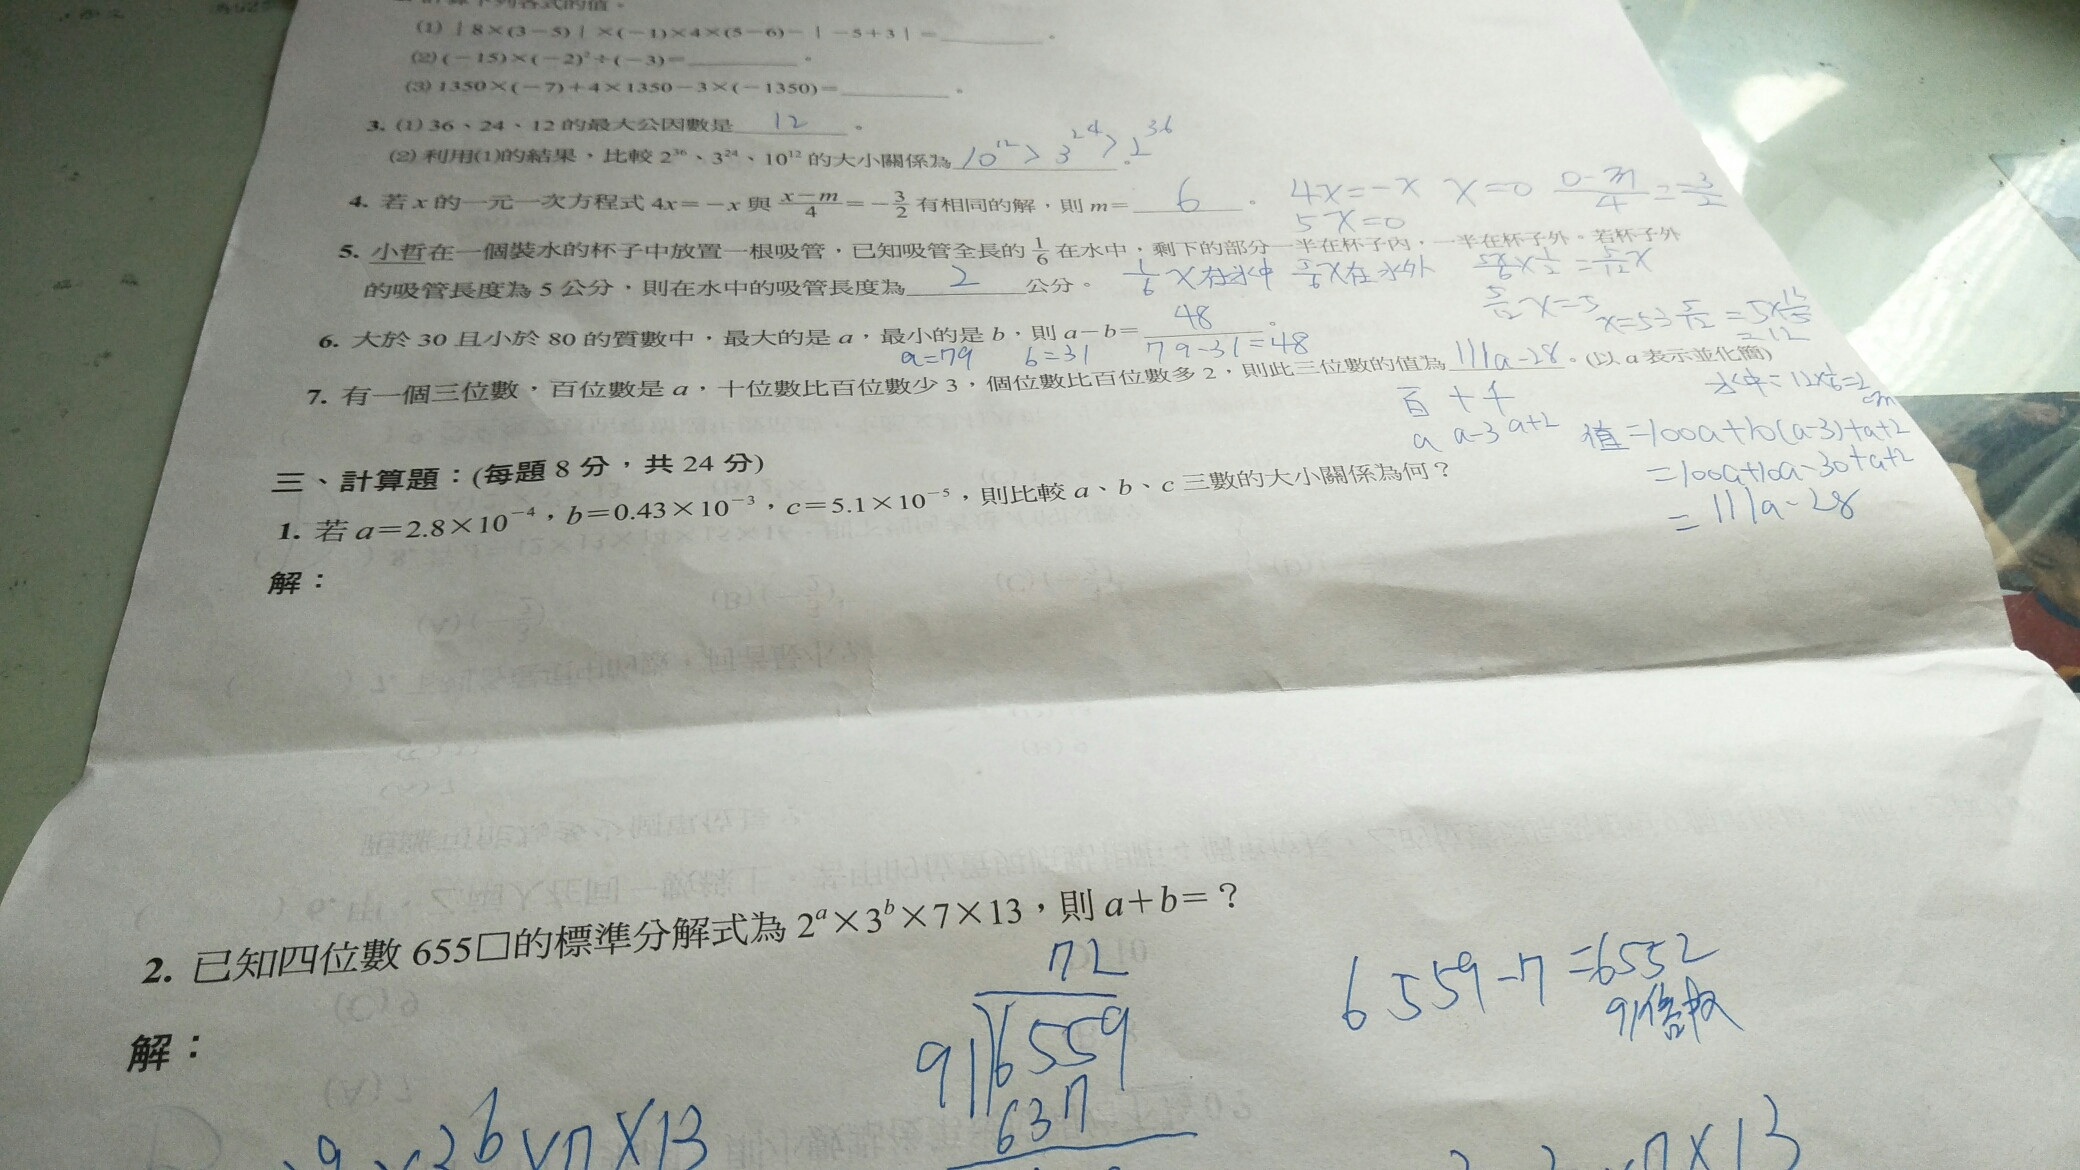 (1)│8×(3－5)│×(－1)×4×(5－6)－│－5＋3│＝________。
(2)(－15)×(－2)²÷(－3)＝________。
(3)1350×(－7)＋4×1350－3×(－1350)＝________。
3. (1)36、24、12的最大公因數是 12 。
(2)利用(1)的結果，比較2³⁶、3²⁴、10¹²的大小關係為 10¹²>3²⁴>2³⁶ 。
4. 若x的一元一次方程式4x＝－x與(x－m)/4＝－3/2有相同的解，則m＝ 6 。
4x=-x x=0 (0-m)/4=-3/2
5x=0
5. 小哲在一個裝水的杯子中放置一根吸管，已知吸管全長的1/6在水中，剩下的部分一半在杯子內，一半在杯子外。若杯子外
的吸管長度為5公分，則在水中的吸管長度為 2 公分。
1/6x在水中 5/6x在水外 5/6x×1/2=5/12x
5/12x=5 x=5÷5/12=5×12/5
=12
水中=12×1/6=2
cm
6. 大於30且小於80的質數中，最大的是a，最小的是b，則a－b＝ 48 。
a=79 b=31 79-31=48
7. 有一個三位數，百位數是a，十位數比百位數少3，個位數比百位數多2，則此三位數的值為 111a-28 。(以a表示並化簡)
百 十
a a-3 a+2
值=100a+10(a-3)+a+2
=100a+10a-30+a+2
=111a-28
三、計算題：(每題8分，共24分)
1. 若a＝2.8×10⁻⁴，b＝0.43×10⁻³，c＝5.1×10⁻⁵，則比較a、b、c三數的大小關係為何？
解：
2. 已知四位數655□的標準分解式為2ᵃ×3ᵇ×7×13，則a＋b＝？
解：
72
91)6559
637
6559-7=6552
91倍數
×7×13
×7×13